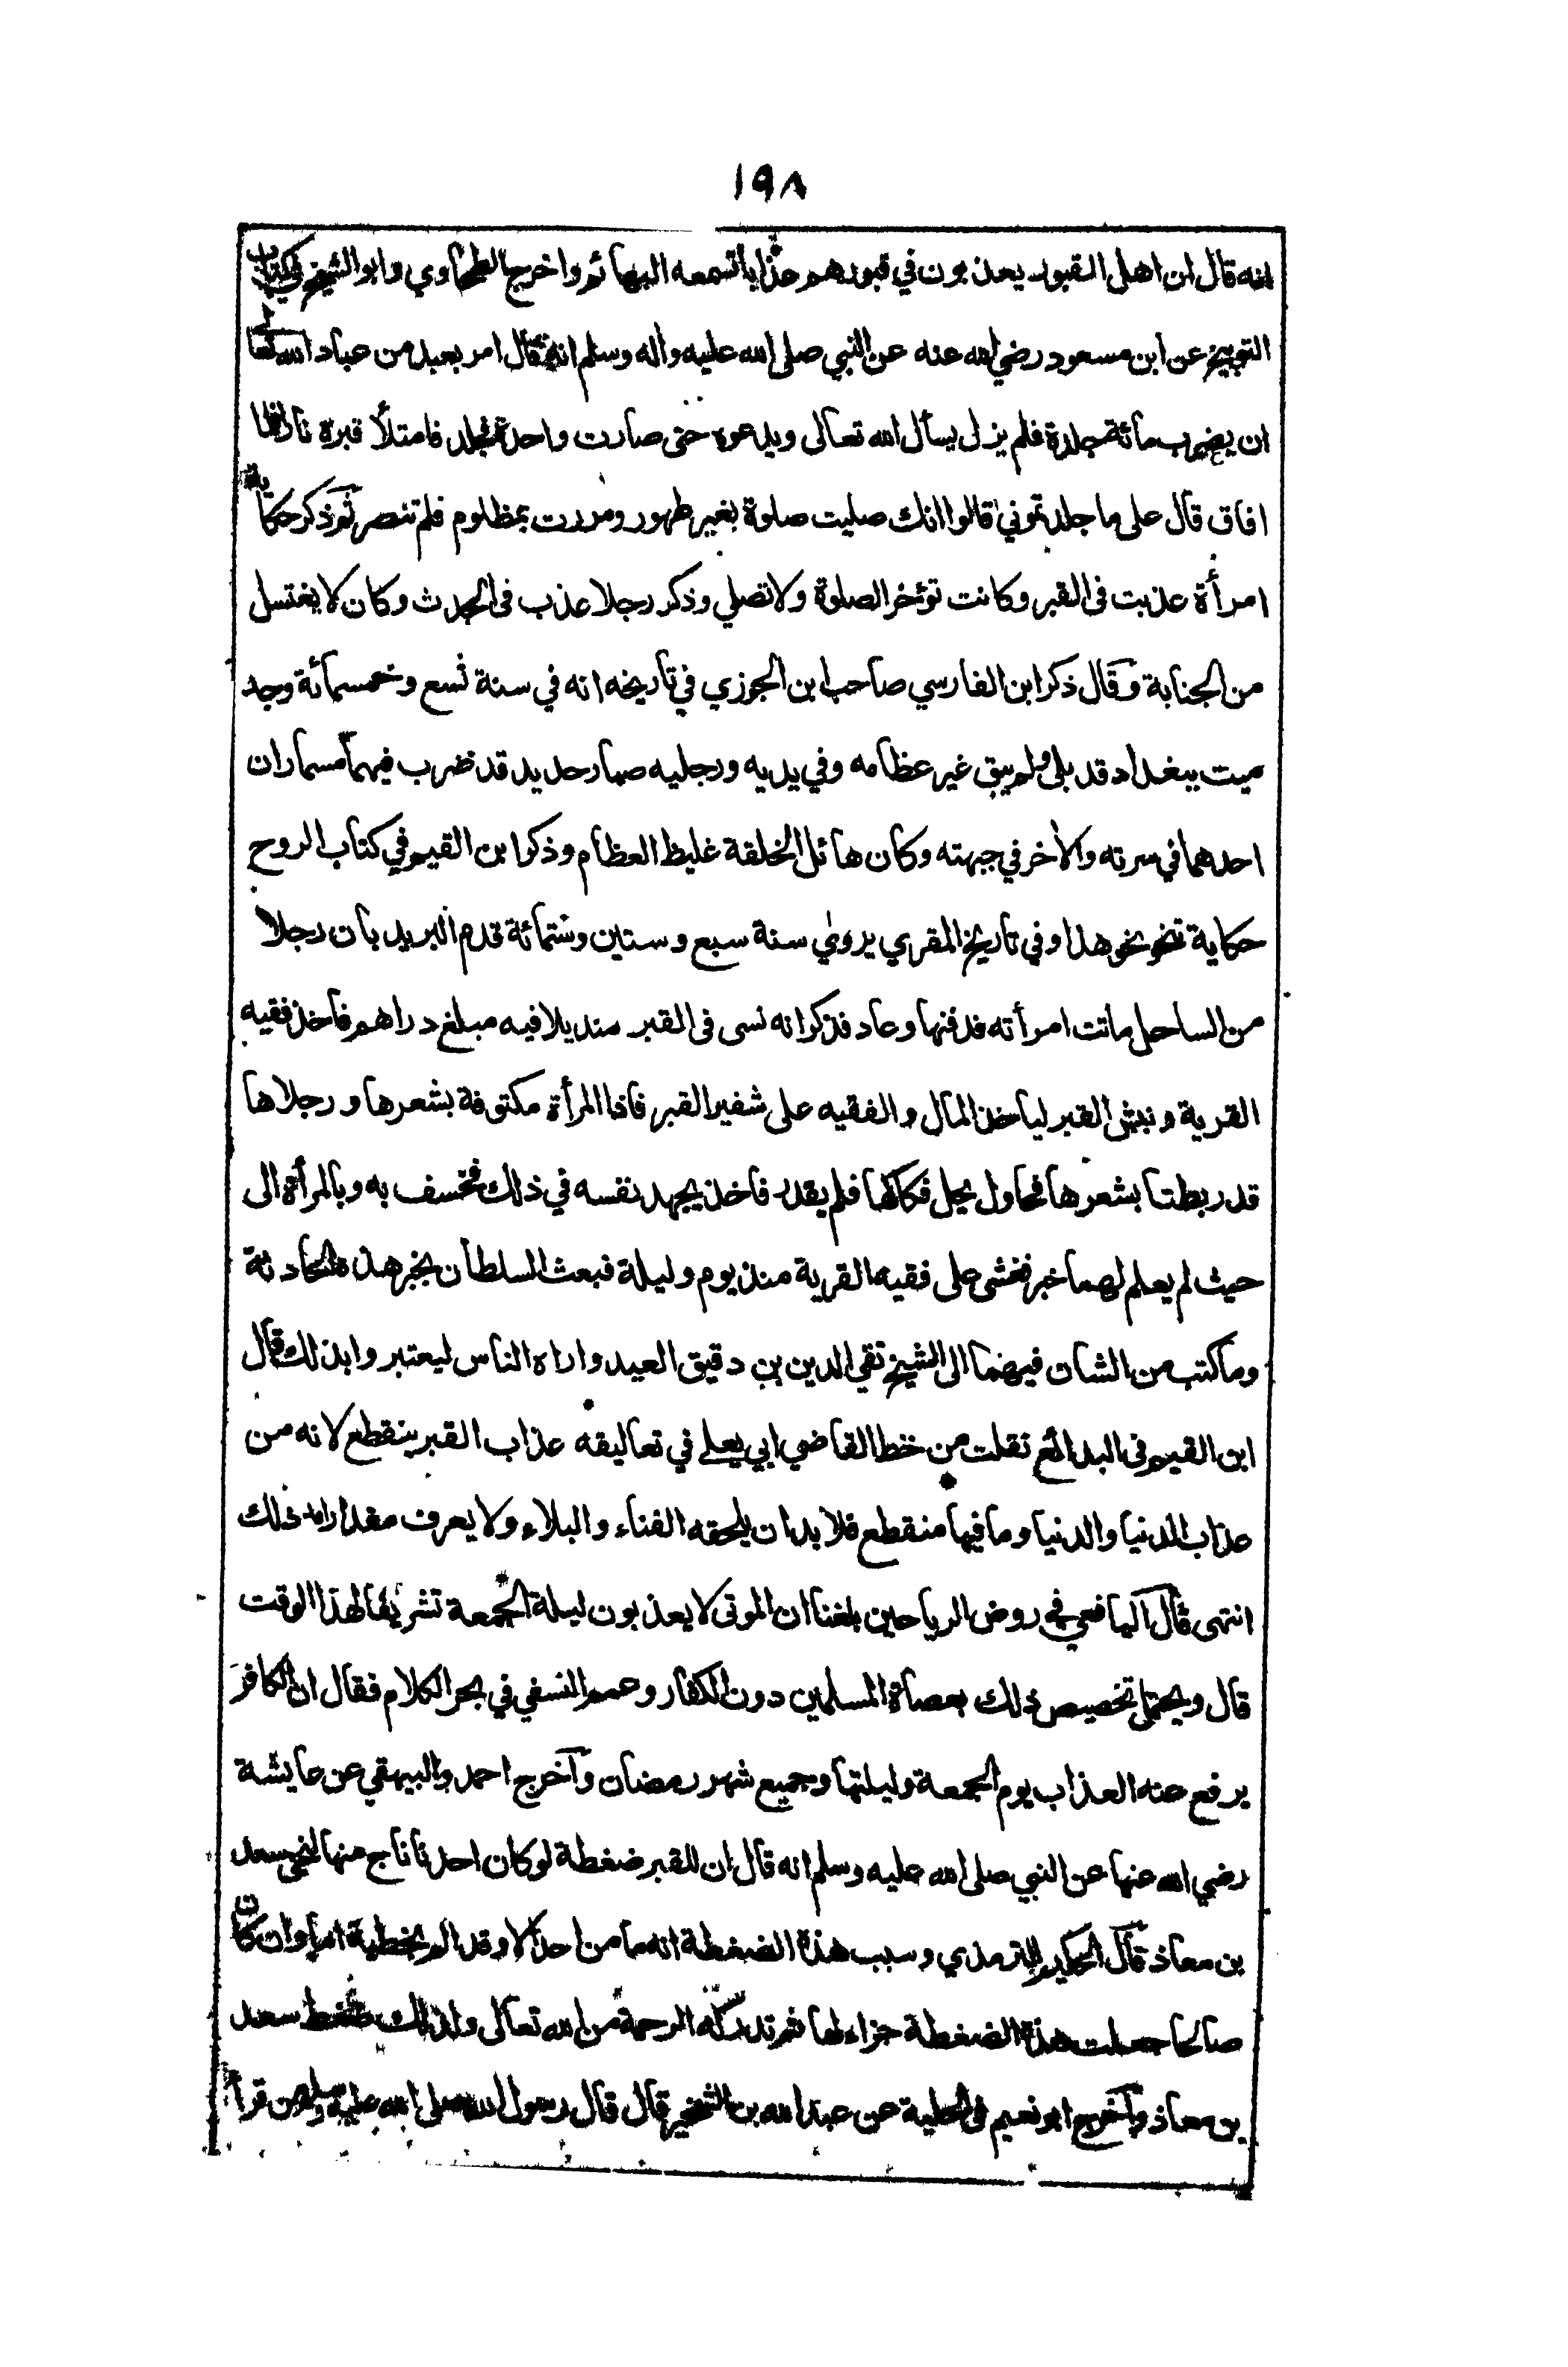 ١٩٨
انه قال ان اهل القبور يعذبون في قبورهم عذابا تسمعه البهائم واخرج الطحاوي وابو الشيخ في كتاب
التوبيخ عن ابن مسعود رضي الله عنه عن النبي صلى الله عليه واله وسلم انه قال امر بعبد من عباد الله تعالى
ان يضرب مائة جلدة فلم يزل يسأل الله تعالى ويدعوه حتى صارت واحدة فجلد فامتلأ قبره نارا فلما
افاق قال على ما جلدتموني قالوا انك صليت صلوة بغير طهور ومررت بمظلوم فلم تنصر ثم ذكر حكاية
امرأة عذبت فى القبر وكانت تؤخر الصلوة ولا تصلي وذكر رجلا عذب فى الحدث وكان لا يغتسل
من الجنابة وقال ذكر ابن الفارسي صاحب ابن الجوزي في تاريخه انه في سنة تسع وخمسمائة وجد
ميت ببغداد قد بلى ولم يبق غير عظامه وفي يديه ورجليه صمار حديد قد ضرب فيهما مسماران
احدهما في سرته والأخر في جبهته وكان هائل الخلقة غليظ العظام وذكر ابن القيم في كتاب الروح
حكاية نحو هذا وفي تاريخ المقري يروي سنة سبع وستين وستمائة قدم البريد بان رجلا
من الساحل ماتت امرأته فدفنها وعاد فذكر انه نسى فى القبر منديلا فيه مبلغ دراهم فاخذ فقيه
القرية ونبش القبر لياخذ المال والفقيه على شفير القبر فاذا المرأة مكتوفة بشعرها ورجلاها
قد ربطتا بشعرها فحاول يحل فكاكها فلم يقدر فاخذ يجهد نفسه في ذلك فخسف به وبالمرأة الى
حيث لم يعلم لهما خبر فغشى على فقيه القرية منذ يوم وليلة فبعث السلطان بخبر هذه الحادثة
وما كتب من الشان فيهما الى الشيخ تقي الدين بن دقيق العيد واراه الناس ليعتبروا بذلك قال
ابن القيم فى البدائع نقلت من خط القاضي ابي يعلے في تعاليقه عذاب القبر ينقطع لانه من
عذاب الدنيا والدنيا وما فيها منقطع فلا بد ان يلحقه الفناء والبلاء ولا يعرف مقدار امد ذلك
انتهى قال اليافعي في روض الرياحين بلغنا ان الموتى لا يعذبون ليلة الجمعة تشريفا لهذا الوقت
قال ويحتمل تخصيص ذلك بعصاة المسلمين دون الكفار وعمم النسفي في بحر الكلام فقال ان الكافر
يرفع عنه العذاب يوم الجمعة وليلتها وجميع شهر رمضان وأخرج احمد والبيهقي عن عايشة
رضي الله عنها عن النبي صلى الله عليه وسلم انه قال ان للقبر ضغطة لو كان احد نا ناج منها لنجى سعد
بن معاذ قال الحكيم الترمذي وسبب هذه الضغطة انه ما من احد الا وقد الم بخطيئة اما وان كان
صالحا جعلت هذه الضغطة جزاء لها ثم تدركه الرحمة من الله تعالى ولذلك ضغط سعد
بن معاذ وأخرج ابو نعيم فى الحلية عن عبد الله بن الشخير قال قال رسول الله صلى الله عليه وسلم من قرأ